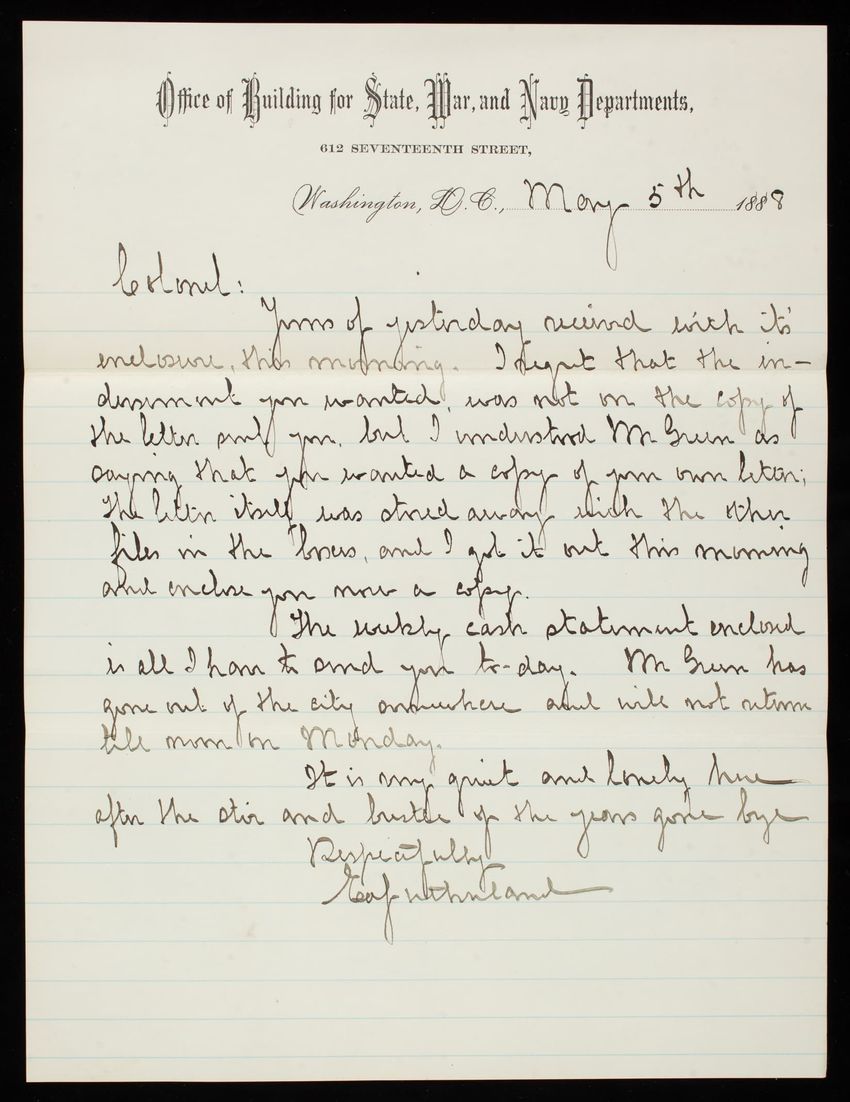 Office of Building for State, War, and Navy Departments,
612 SEVENTEENTH STREET,
Washington, D.C., May 5th 1888
Colonel:
Yours of yesterday received with its'
enclosure, this morning. I regret that the in-
dorsement you wanted, was not on the copy of
the letter sent you, but I understood Mr Green as
saying that you wanted a copy of your own letter;
The letter itself was stored away with the other
files in the boxes, and I got it out this morning
and enclose you now a copy.
The weekly cash statement enclosed
is all I have to send you to-day. Mr Green has
gone out of the city somewhere and will not return
till noon on Monday.
It is very quiet and lonely here
after the stir and bustle of the years gone bye
Respectfully